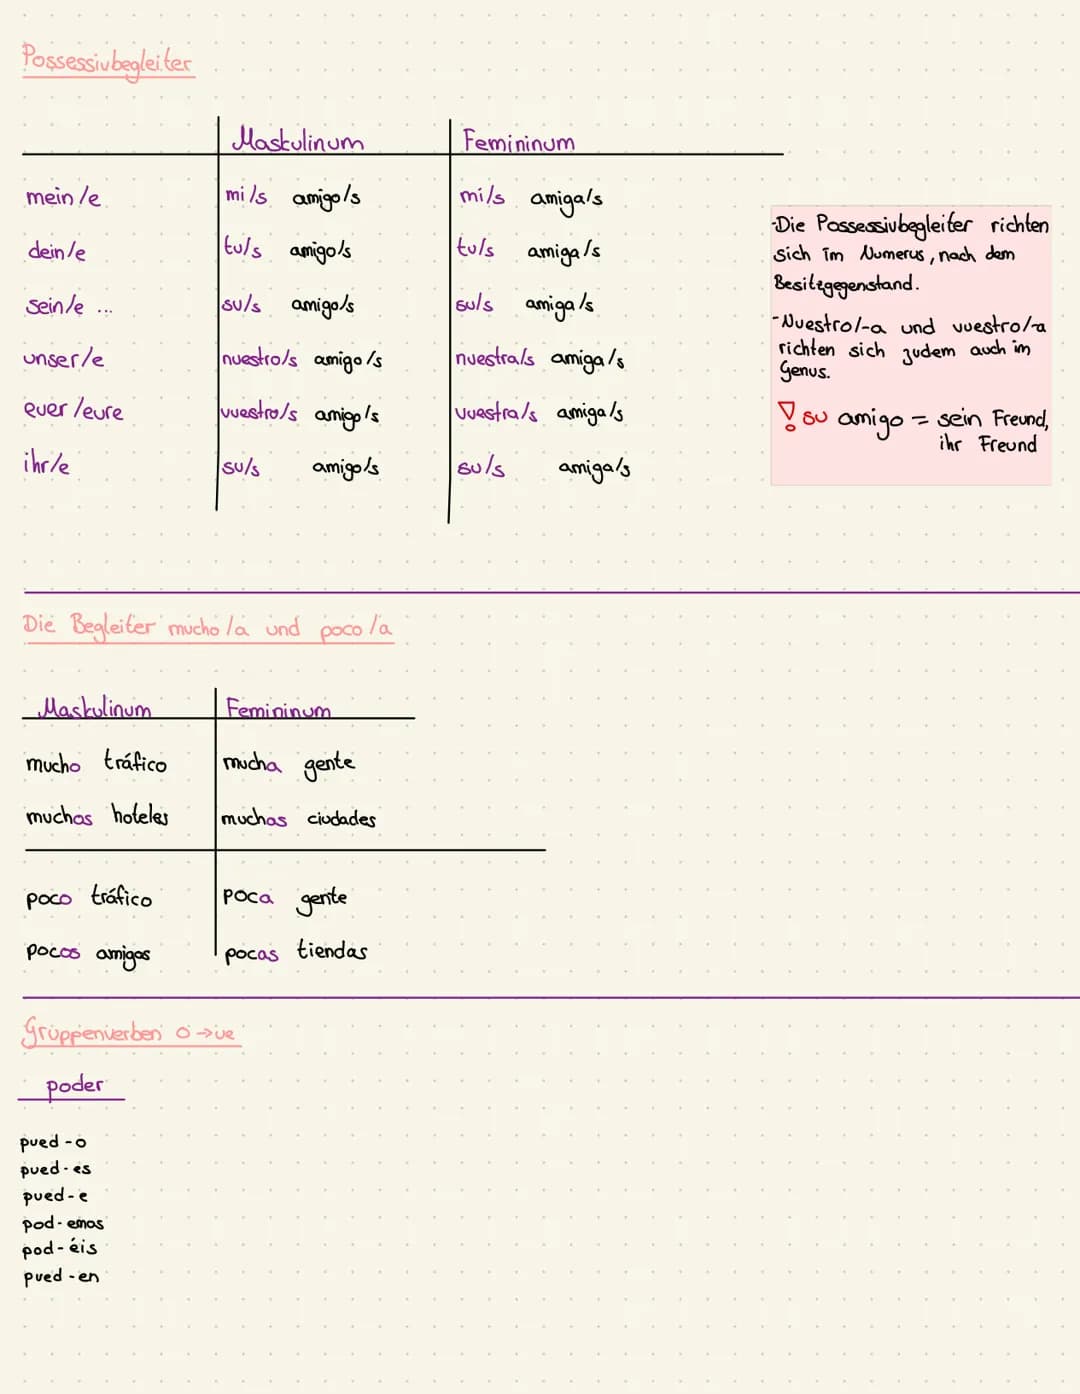 Possessivbegleiter
Maskulinum Femininum
mein/e mi/s amigo/s mi/s amiga/s
dein/e tu/s amigo/s tu/s amiga/s
sein/e ... su/s amigo/s su/s amiga/s
unser/e nuestro/s amigo/s nuestra/s amiga/s
euer/eure vuestro/s amigo/s vuestra/s amiga/s
ihr/e su/s amigo/s su/s amiga/s
-Die Possessivbegleiter richten
sich im Numerus, nach dem
Besitzgegenstand.
-Nuestro/-a und vuestro/-a
richten sich zudem auch im
Genus.
! su amigo = sein Freund,
ihr Freund
Die Begleiter mucho/a und poco/a
Maskulinum Femininum
mucho tráfico mucha gente
muchos hoteles muchas ciudades
poco tráfico poca gente
pocos amigos pocas tiendas
Gruppenverben o→ue
poder
pued-o
pued-es
pued-e
pod-emos
pod-éis
pued-en